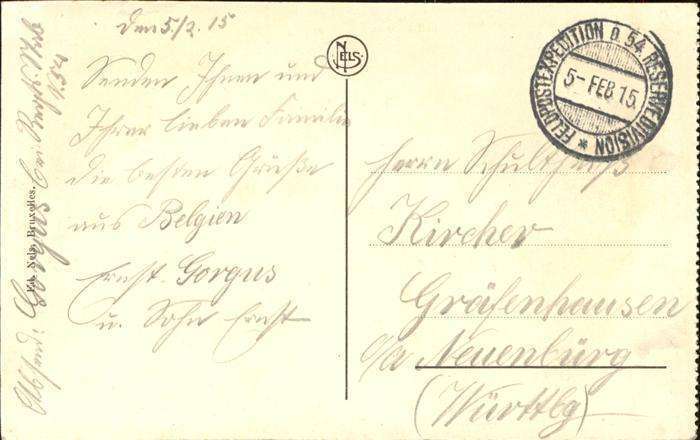 den 5/2. 15
Senden Ihnen und
Ihrer lieben Familie
die besten Grüße
aus Belgien
Ernst Gorgus
u. Sohn Ernst
Absend: Gorgus bei Regt.
Ed. Nels, Bruxelles.
NELS
FELDPOSTEXPEDITION D. 54. RESERVEDIVISION *
5- FEB 15.
Herrn Schultheiß
Kircher
Gräfenhausen
o/a Neuenbürg
(Württbg)